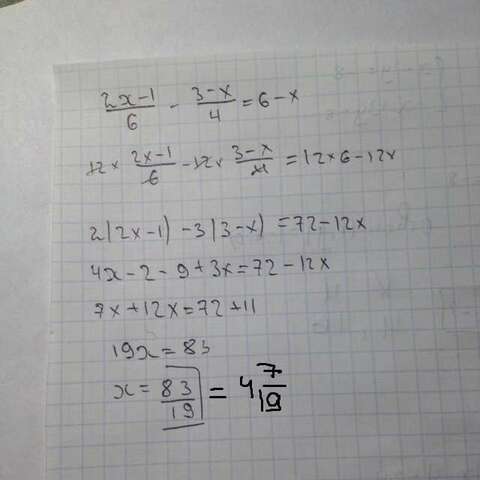 (2x-1)/6 - (3-x)/4 = 6-x
12× (2x-1)/6 - 12× (3-x)/4 = 12×6-12x
2(2x-1) -3(3-x) =72-12x
4x-2-9+3x=72-12x
7x+12x=72+11
19x=83
x= 83/19 = 4 7/19